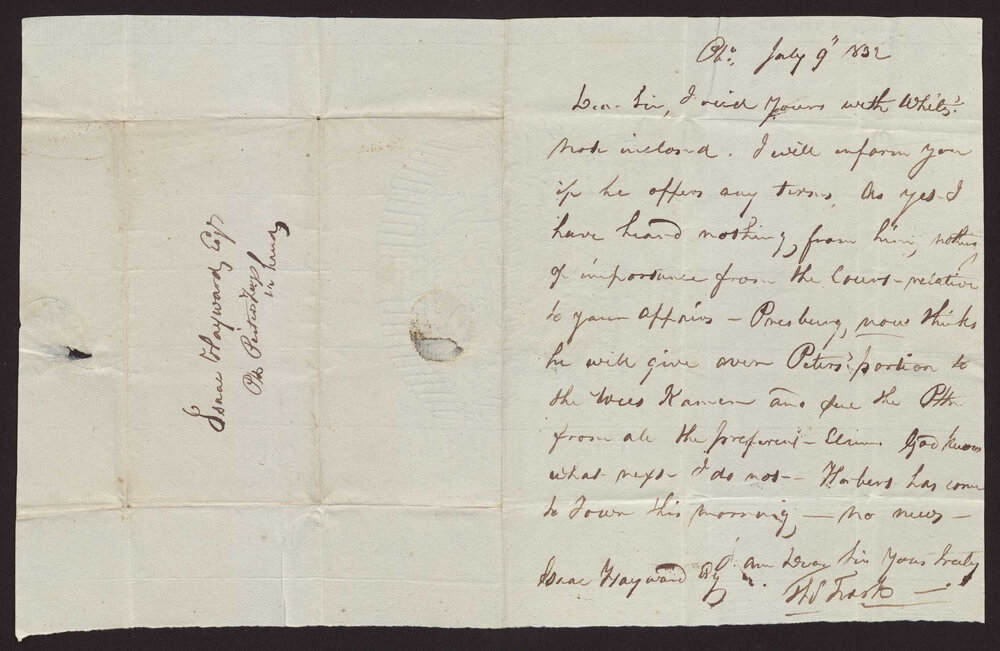 July 9" 1832
Dear Sir, I recd yours with White's
Note inclosd. I will inform you
if he offers any terms, As yet I
have heard nothing from him, nothing
of importance from the Court relative
to your Affairs — Presburg, now thinks
he will give over Peters' portion to
the and free the
from all the God knows
what next I do not — Herbert has come
to Town this morning — no news —
I am Dear Sir Yours truly
Isaac Hayward Esq
Isaac Hayward Esqr
in hand